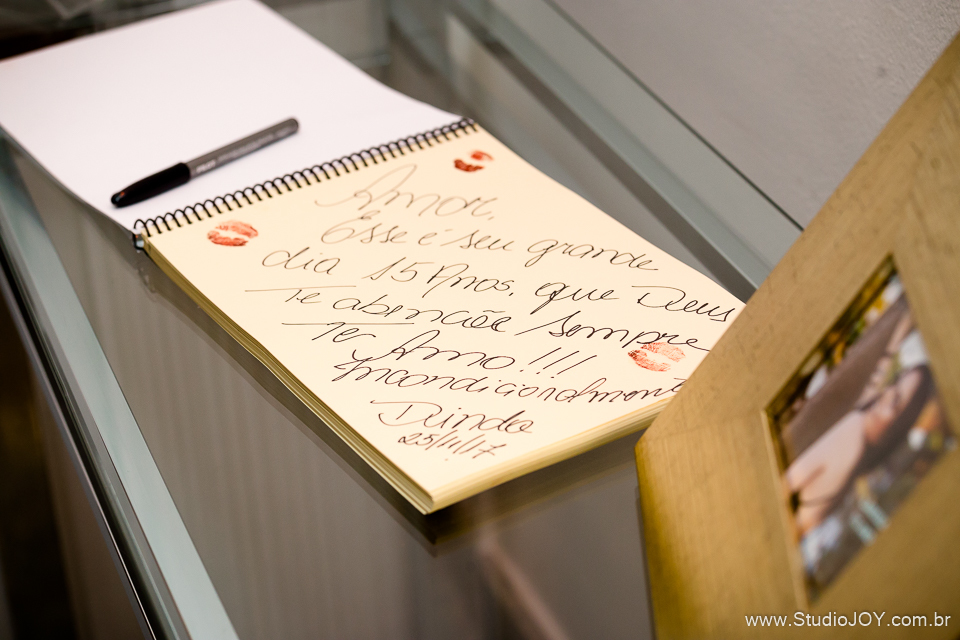 Amor,
Esse é seu grande
dia 15 Anos, que Deus
Te abençõe sempre
Te Amo!!!
Incondicionalmente
Dinda
25/11/17
www.StudioJOY.com.br